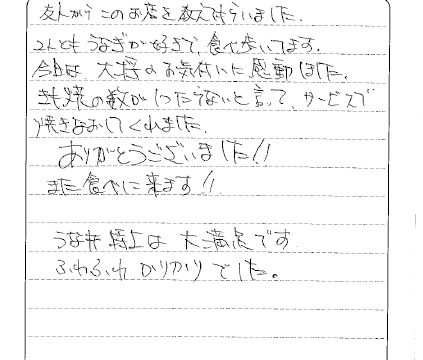 友人からこのお店を教えてもらいました。
2人ともうなぎが好きで、食べ歩いてます。
今日は、大将のお気付いに感動しました。
きも焼の数が1つたらないと言って、サービスで
焼きなおしてくれました。
ありがとうございました!!
また食べに来ます!!
うな丼特上は大満足です
ふわふわカリカリでした。